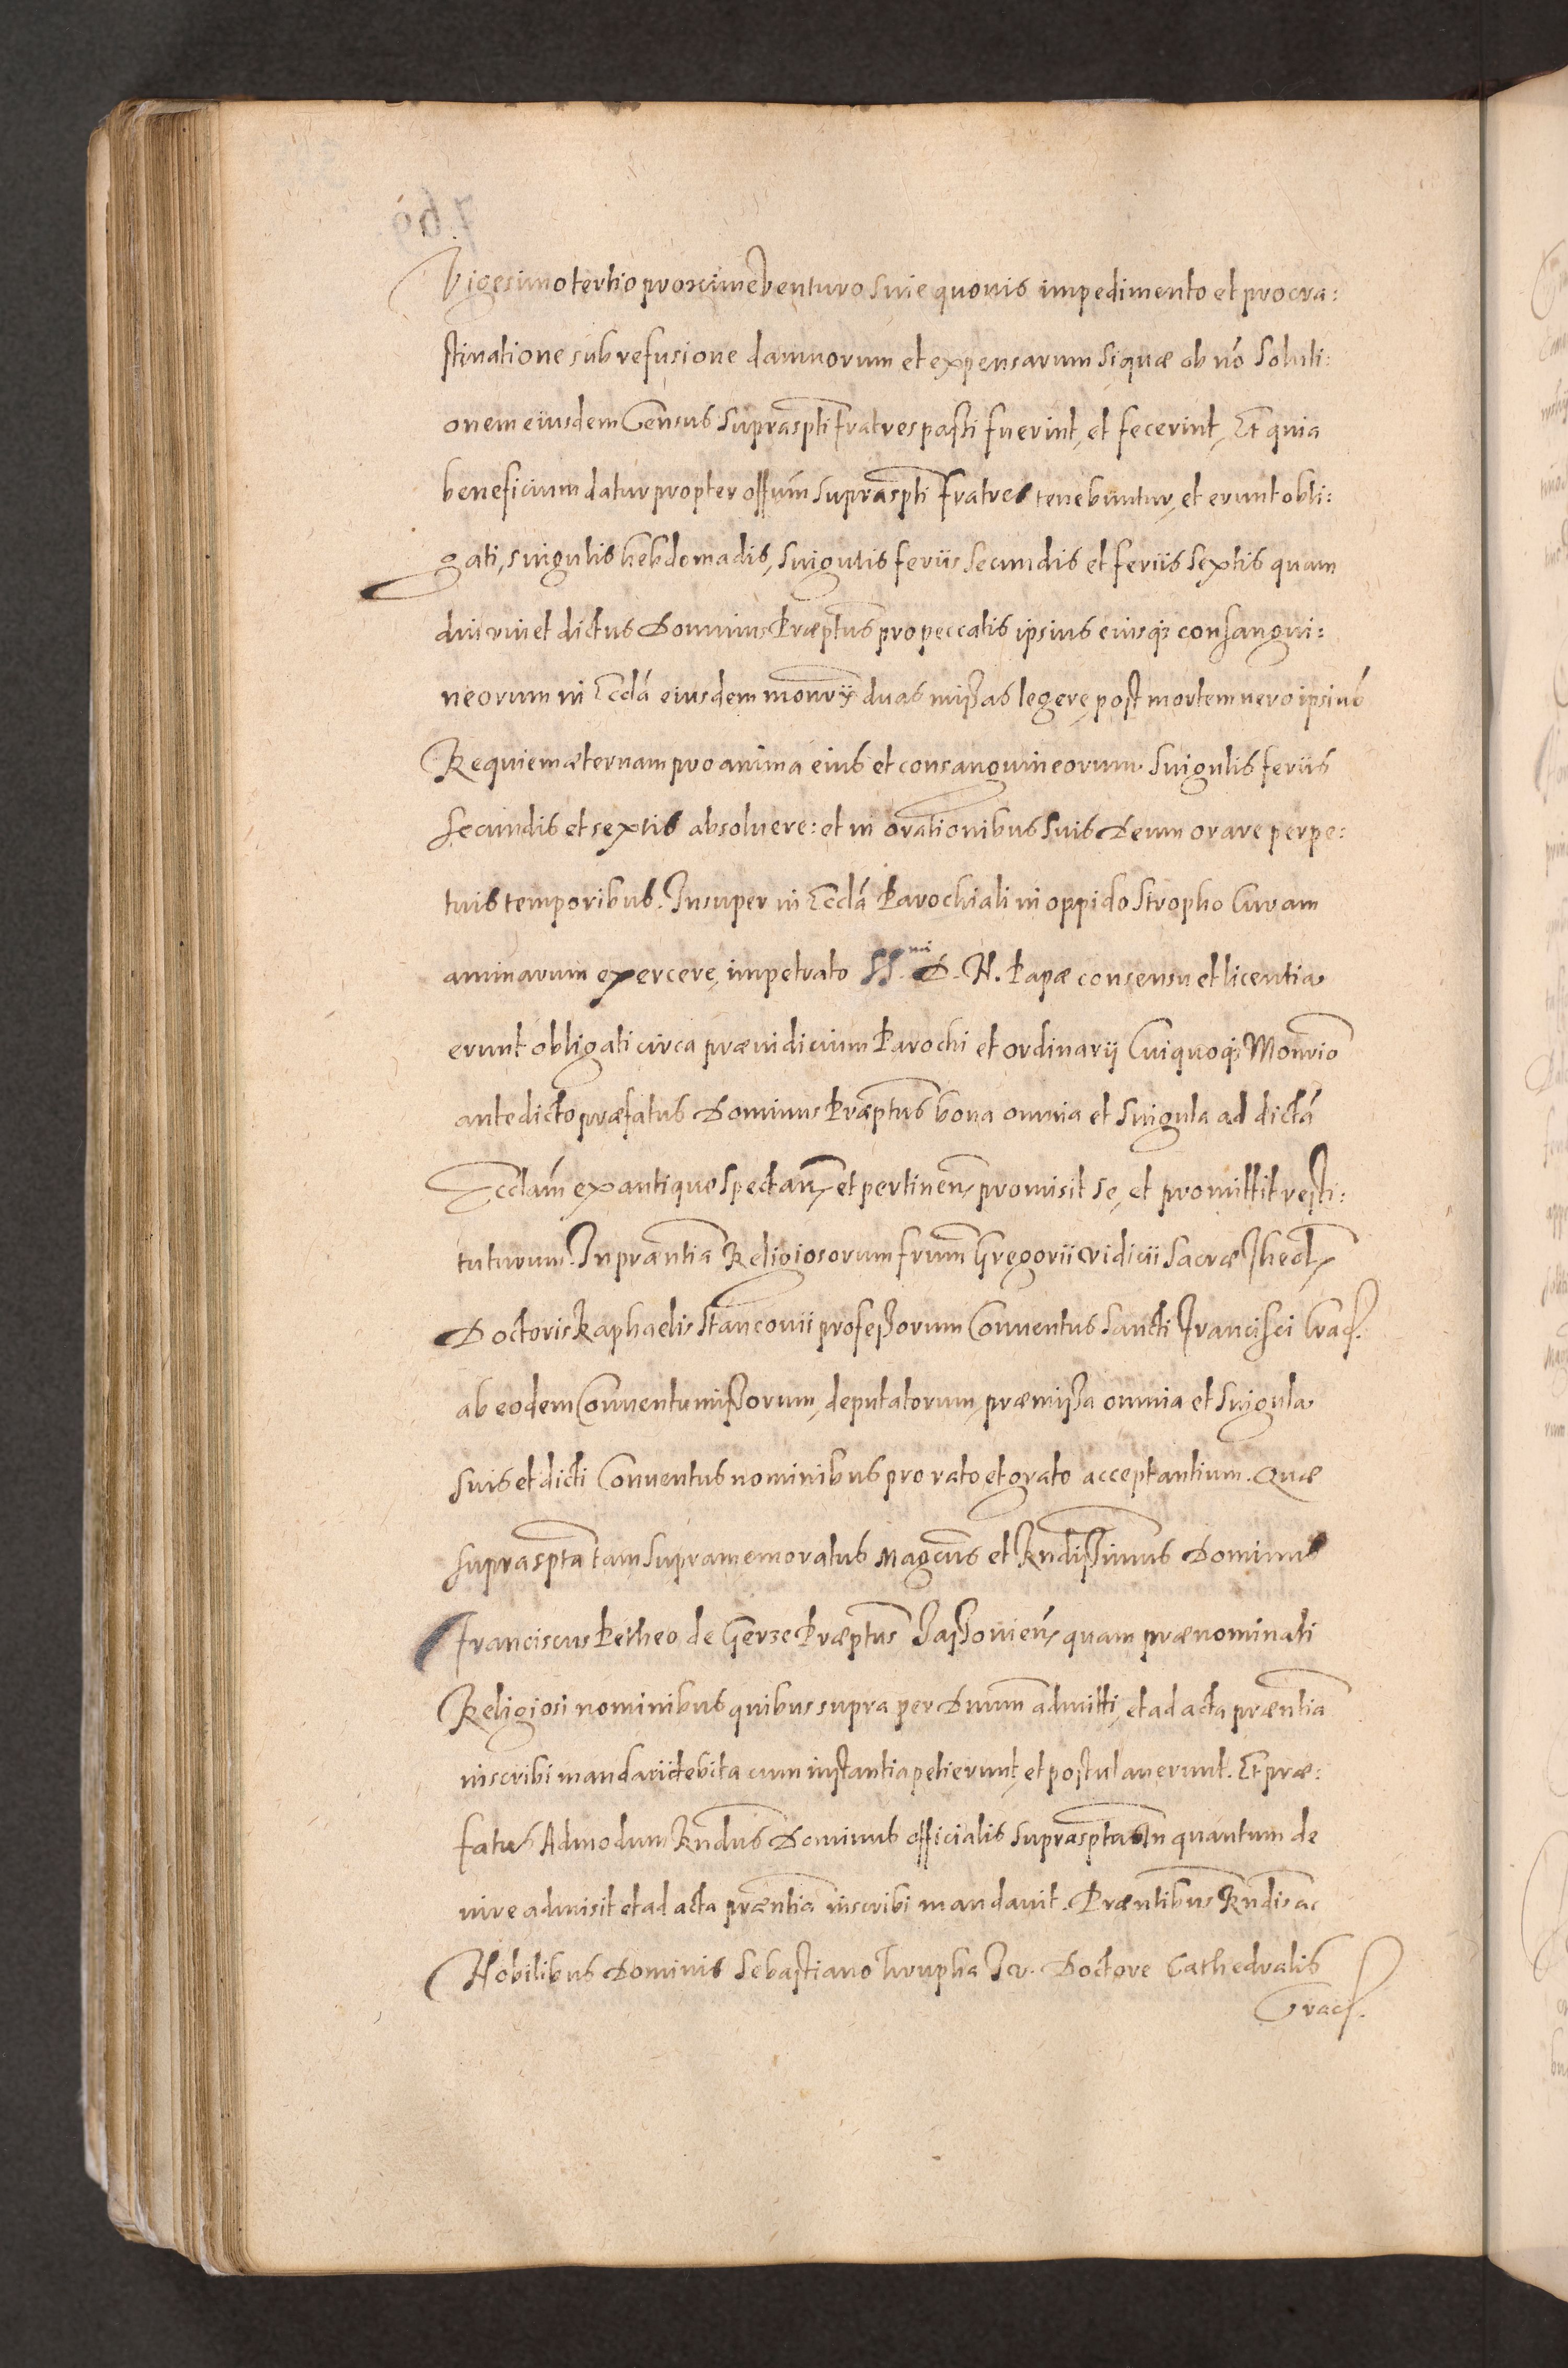 Vigesimotertio proxime venturo sine quovis impedimento et procra:
stinatione sub refusione damnorum et expensarum siquæ ob nō soluti:
onem eiusdem Census suprasptī fratres passi fuerint, et fecerint, Et quia
beneficium datur propter offūm suprasptī Fratres tenebuntur, et erunt obli:
gati, singulis hebdomadis, singulis feriis secundis et feriis sextis quam
diu vivet dictus Dominus Præptus pro peccatis ipsius eiusq; consangui:
neorum in Ecclā eiusdem monrīj duas missas legere, post mortem vero ipsius
Requiem æternam pro anima eius et consanguineorum singulis feriis
secundis et sextis absolvere: et in orationibus suis Deum orare perpe:
tuis temporibus. Insuper in Ecclā Parochiali in oppido Stropko Curam
animarum exercere, impetrato SS.mi D. N. Papæ consensu et licentia
erunt obligati circa præiudicium Parochi et ordinarij Cuiquoq; Monrio
antedicto præfatus Dominus Præptus bona omnia et singula ad dictā
Ecclām ex antiquo spectan̄ et pertinen̄ promisit se, et promittit resti:
tuturum. In præntia Religiosorum frūm Gregorii vidicii Sacræ Theol
Doctoris Raphaelis Stancovii professorum Conventus Sancti Francisci Crac.
ab eodem Conventu missorum, deputatorum, præmissa omnia et singula
suis et dicti Conventus nominibus pro rato et grato acceptantium. Quæ
supraspta tam supramemoratus Magcus et Rndissimus Dominus
Franciscus Petheo de Gerze Præptus Jassovien̄ quam prænominati
Religiosi nominibus quibus supra per Dnum admitti, et ad acta præntia
inscribi mandari debita cum instantia petierunt, et postulaverunt. Et præ:
fatus Admodum Rndus Dominus officialis suprasptas In quantum de
iure admisit et ad acta præntia inscribi mandavit. Præntibus Rndis ac
Nobilibus Dominis Sebastiano Krupka J.V. Doctore Cathedralis
Crac.